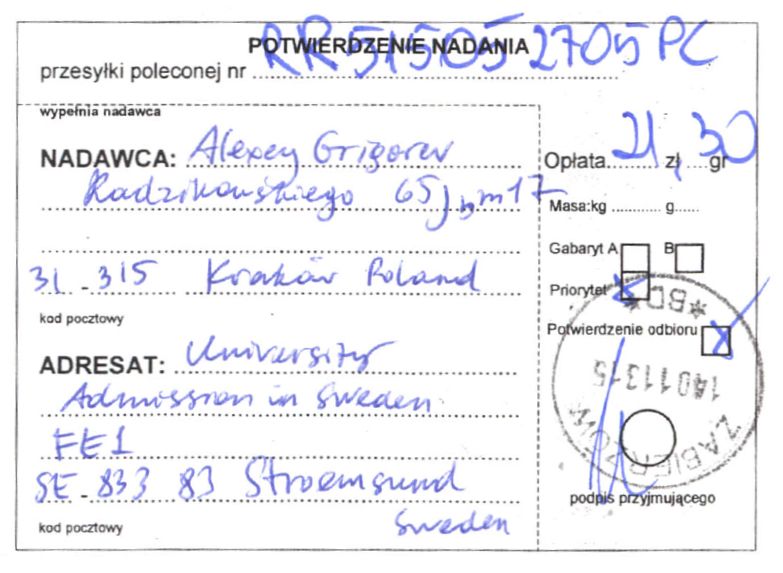 POTWIERDZENIE NADANIA
przesyłki poleconej nr RR515052705PL
wypełnia nadawca
NADAWCA: Alexey Grigorev
Radzikowskiego 65
31-315 Kraków Poland
kod pocztowy
ADRESAT: University
Admission in Sweden
FE1
SE-833 83 Stroemsund
Sweden
kod pocztowy
Opłata 21 zł, 30 gr
Masa:kg g
Gabaryt A B
Priorytet
Potwierdzenie odbioru
*BD*
ZABIERZÓW
podpis przyjmującego